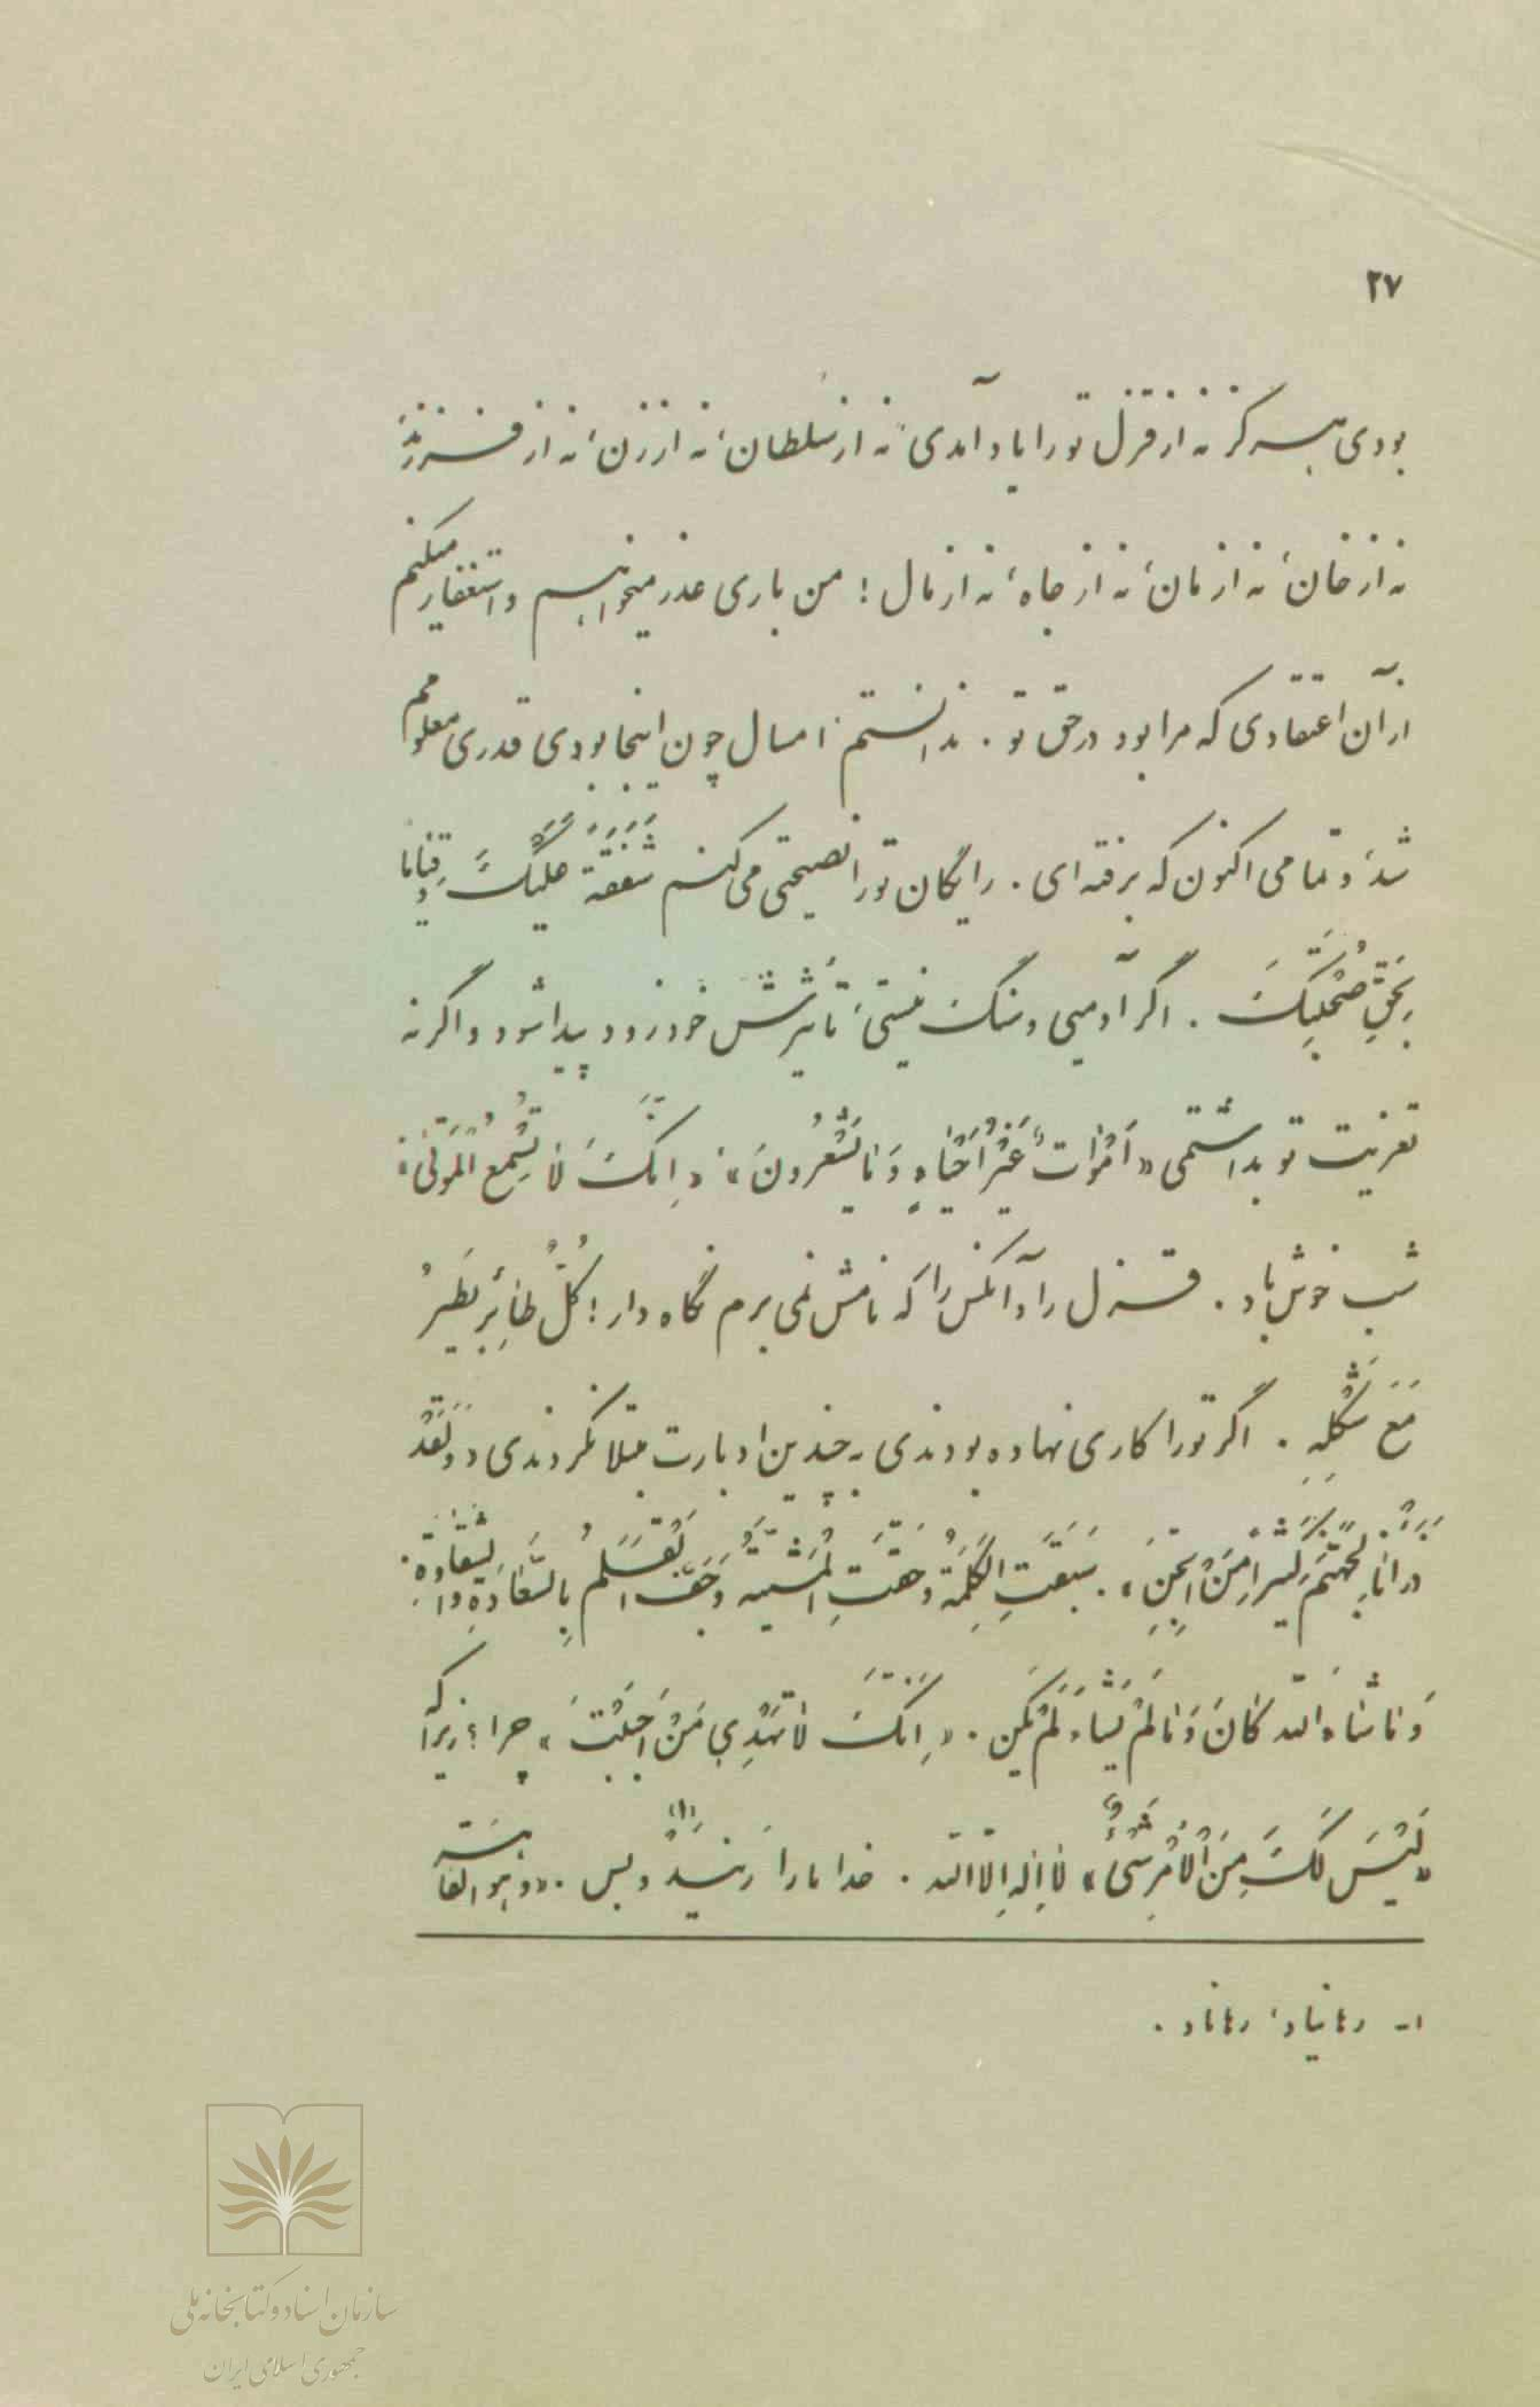 ۲۷
بودی هرگز نه از قزل تو را یاد آمدی، نه از سلطان، نه از زن، نه از فرزند،
نه از خان، نه از مان، نه از جاه، نه از مال! من باری عذر میخواهم و استغفار میکنم
از آن اعتقادی که مرا بود در حق تو. ندانستم امسال چون اینجا بودی قدری معلومم
شد، و تمامی اکنون که برفته‌ای. رایگان تو را نصیحتی می کنم شَفَقَةً عَلَیْکَ وَقِیاماً
بِحَقِّ صُحْبَتِکَ. اگر آدمیی و سنگ نیستی، تأثیرش خود زود پیدا شود و اگر نه
تعزیت تو بداشتمی «اَمْواتٌ غَیْرُ اَحْیاءٍ وَما یَشْعُرُونَ»؛ «اِنَّکَ لا تُسْمِعُ الْمَوْتیٰ»؛
شب خوش باد. قزل را و آنکس را که نامش نمی برم نگاه دار! کُلُّ طائِرٍ یَطیرُ
مَعَ شَکْلِهِ. اگر تو را کاری نهاده بودندی به چندین ادبارت مبتلا نکردندی «وَلَقَدْ
ذَرَأْنا لِجَهَنَّمَ کَثیراً مِنَ الْجِنِّ». سَبَقَتِ الْکَلِمَةُ وَحَقَّتِ الْمَشِیَّةُ وَجَفَّ الْقَلَمُ بِالسَّعادَةِ وَالشَّقاوَةِ.
وَما شاءَ اللّه کانَ وَما لَمْ یَشَاءْ لَمْ یَکُنْ. «اِنَّکَ لا تَهْدی مَنْ اَحْبَبْتَ» چرا؟ زیرا که
«لَیْسَ لَکَ مِنَ الْاَمْرِ شَیْءٌ» لا اِلهَ اِلّا اللّه. خدا ما را رهنید(۱) و بس. «وَهُوَ القاهِر
۱- رهانیاد، رهاناد.
سازمان اسناد و کتابخانه ملی
جمهوری اسلامی ایران